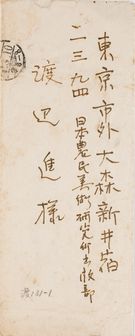 東京市外大森新井宿
二三九四
日本農民美術研究所出版部
渡辺進様